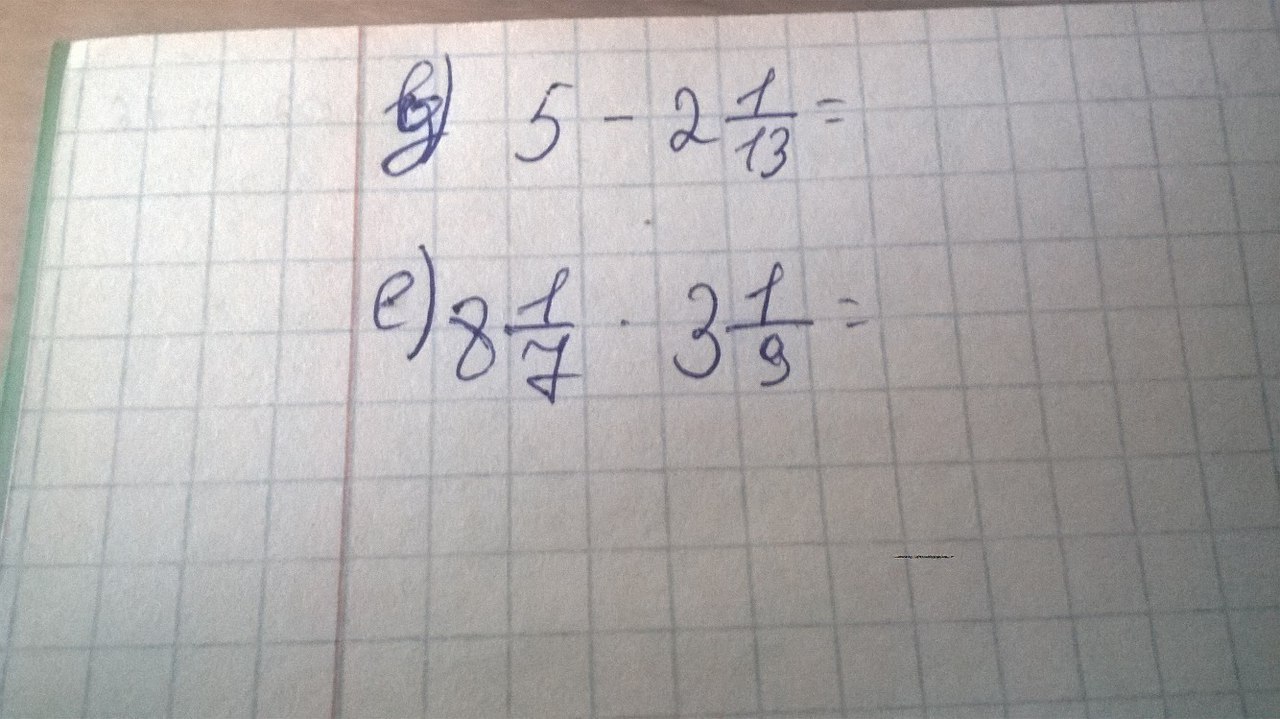 в) 5 - 2 1/13 =
е) 8 1/7 · 3 1/9 =